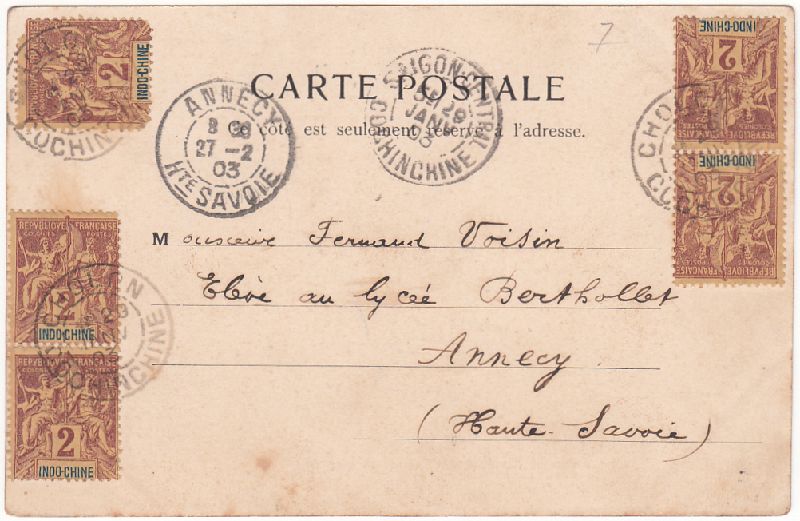 7
CARTE POSTALE
Ce côté est seulement réservé à l'adresse.
ANNECY
8
27 -2
03
HTE SAVOIE
SAIGON CENTRAL
29
JANV
03
COCHINCHINE
Monsieur Fernand Voisin
Elève au lycée Berthollet
Annecy
(Haute-Savoie)
2
INDO-CHINE
COCHINCHINE
REPVBLIQVE FRANÇAISE
COLONIES
2
INDO-CHINE
REPVBLIQVE FRANÇAISE
2
INDO-CHINE
CHOLON
29
COCHINCHINE
INDO-CHINE
2
REPVBLIQVE FRANÇAISE
INDO-CHINE
2
REPVBLIQVE FRANÇAISE
CHOLON
COCH